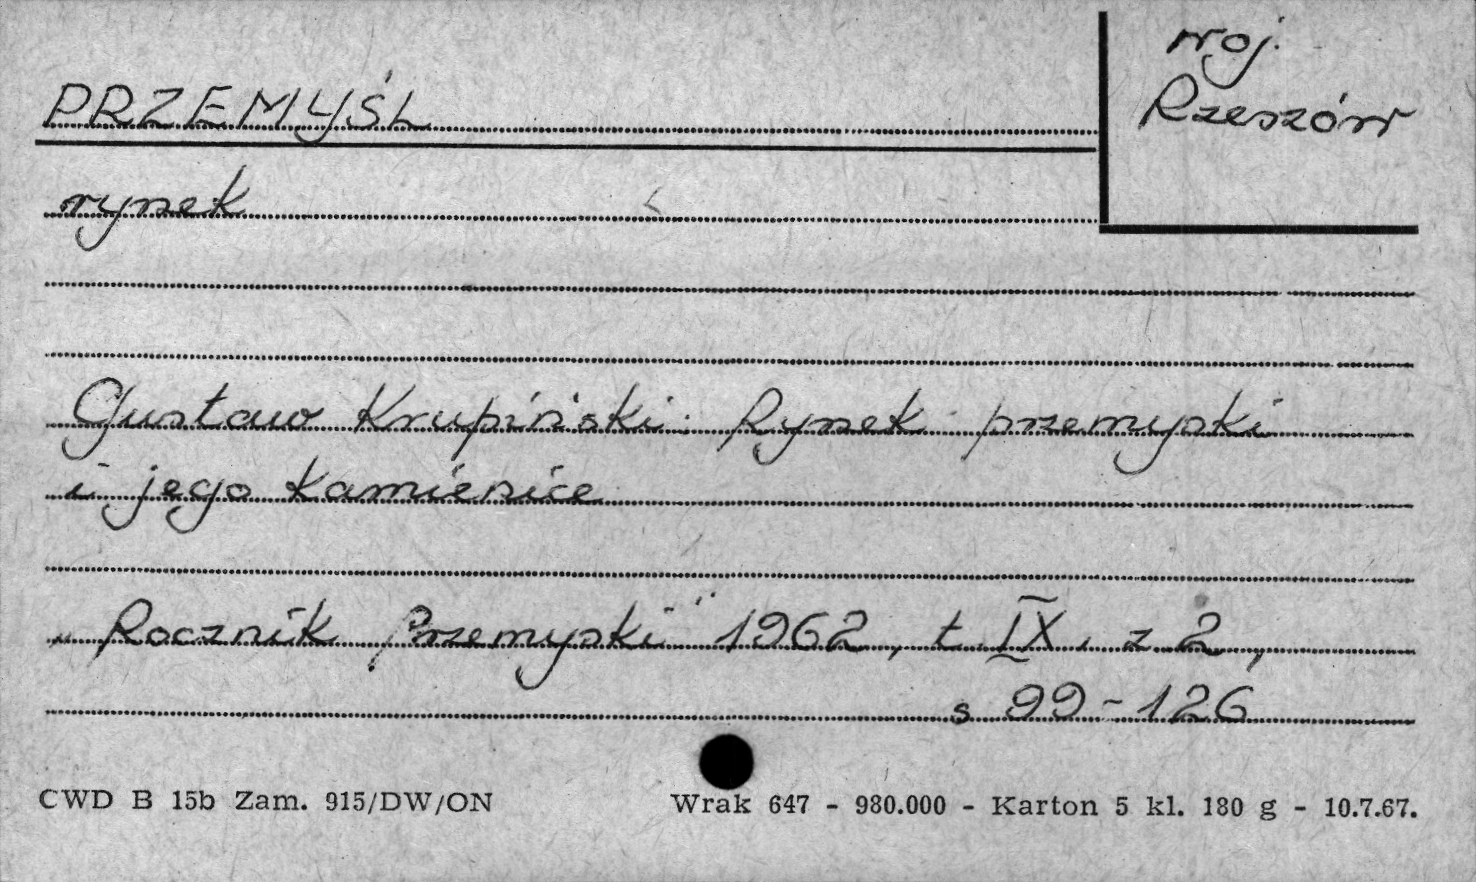 PRZEMYŚL
woj.
Rzeszów
rynek
Gustaw Krupiński: Rynek przemyski
i jego kamienice
„Rocznik Przemyski" 1962, t. IX, z 2,
s 99-126
CWD B 15b Zam. 915/DW/ON
Wrak 647 - 980.000 - Karton 5 kl. 180 g - 10.7.67.